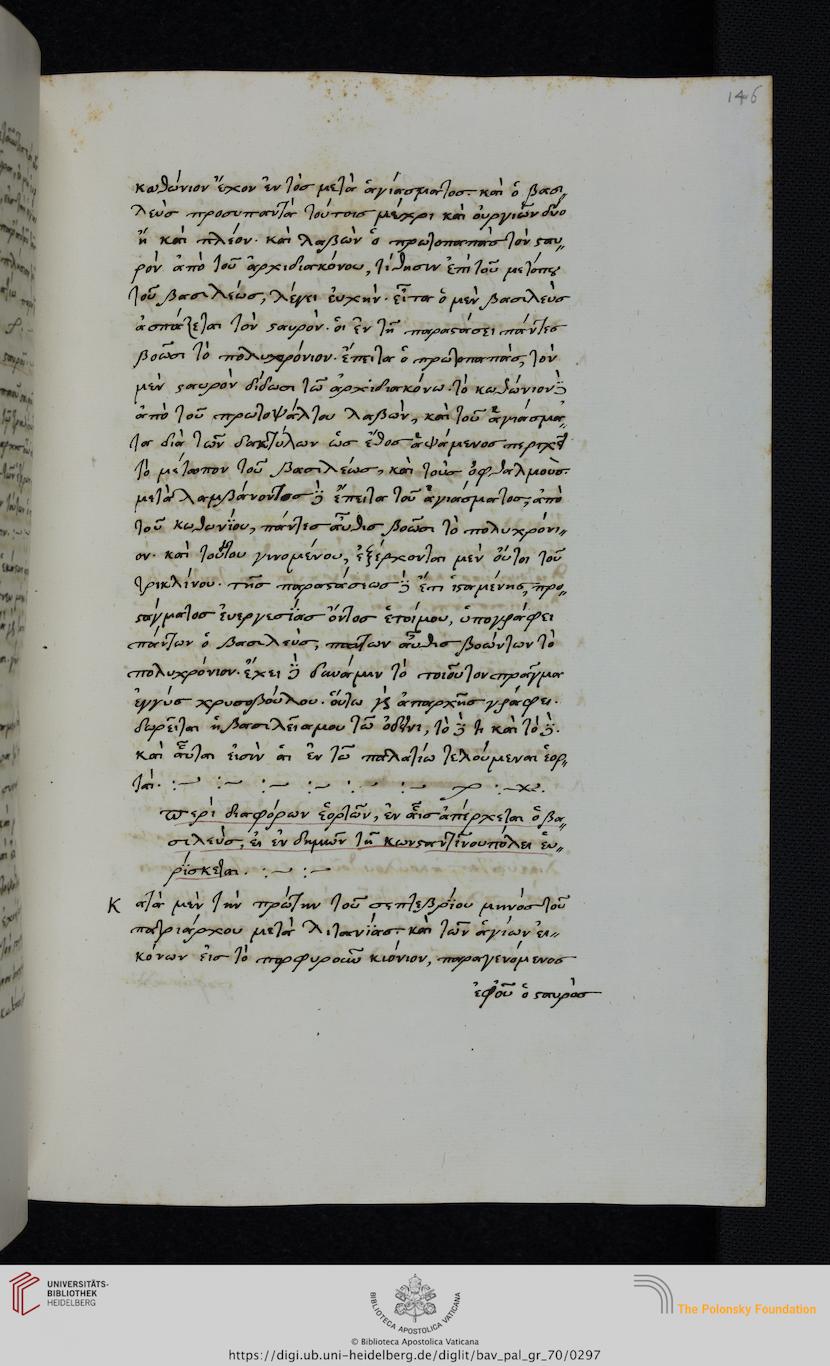 146
κωθώνιον ἔχον ἐντὸς μετὰ ἁγιάσματος· καὶ ὁ βασι-
λεὺς προσυπαντᾷ τούτοις μέχρι καὶ ὀυργιῶν δύο
ἢ καὶ πλέον· καὶ λαβὼν ὁ πρωτοπαπὰς τὸν ϛαυ-
ρὸν ἀπὸ τοῦ ἀρχιδιακόνου, τίθησιν ἐπὶ τοῦ μετόπου
τοῦ βασιλέως, λέγει ἐυχήν· εἶτα ὁ μὲν βασιλεὺς
ἀσπάζεται τὸν ϛαυρόν· ὁι ἐν τῇ παραϛάσει πάντες
βοῶσι τὸ πολυχρόνιον· ἔπειτα ὁ πρωτοπαπάς, τὸν
μὲν ϛαυρὸν δίδωσι τῷ ἀρχιδιακόνω· τὸ κωθώνιον δὲ
ἀπὸ τοῦ πρωτοψάλτου λαβών, καὶ τοῦ ἁγιάσμα-
τος διὰ τῶν δακτύλων ὡς ἔθος ἁψάμενος περιχεῖ
τὸ μέτωπον τοῦ βασιλέως, καὶ τοὺς ὀφθαλμούς·
μεταλαμβάνοντος δὲ ἔπειτα τοῦ ἁγιάσματος, ἀπὸ
τοῦ κωθωνίου, πάντες αὖθις βοῶσι τὸ πολυχρόνι-
ον· καὶ τούτου γινομένου, ἐξέρχονται μὲν οὗτοι τοῦ
τρικλίνου· τῆς παραϛάσεως δὲ ἔτι ἱϛαμένης, προ-
ϛάγματος ἐυεργεσίας ὄντος ἑτοίμου, ὑπογράφει
πάντων ὁ βασιλεύς, πάντων αὖθις βοώντων τὸ
πολυχρόνιον· ἔχει δὲ δύναμιν τὸ τοιοῦτον πρᾶγμα
ἐγγὺς χρυσοβούλου· οὕτω γὰρ ἀπαρχῆς γράφει·
δωρεῖται ἡ βασιλεία μου τῷ ὁδεῖνι, τὸ δέ τι καὶ τὸ δέ·
καὶ αὗται εἰσὶν αἱ ἐν τῷ παλατίω τελούμεναι ἑορ-
ταί·
Περὶ διαφόρων ἑορτῶν, ἐν αἷς ἀπέρχεται ὁ βα-
σιλεύς, εἰ ἐνδημῶν τῇ κωνϛαντινουπόλει ἑυ-
ρίσκεται.
Κατὰ μὲν τὴν πρώτην τοῦ σεπτεβρίου μηνὸς τοῦ
πατριάρχου μετὰ λιτανίας· καὶ τῶν ἁγίων ἐι-
κόνων εἰς τὸ πορφυροῦν κιόνιον, παραγενόμενος
ἐφοῦ ὁ ϛαυρὸς
UNIVERSITÄTS-
BIBLIOTHEK
HEIDELBERG
BIBLIOTECA APOSTOLICA VATICANA
The Polonsky Foundation
© Biblioteca Apostolica Vaticana
https://digi.ub.uni-heidelberg.de/diglit/bav_pal_gr_70/0297